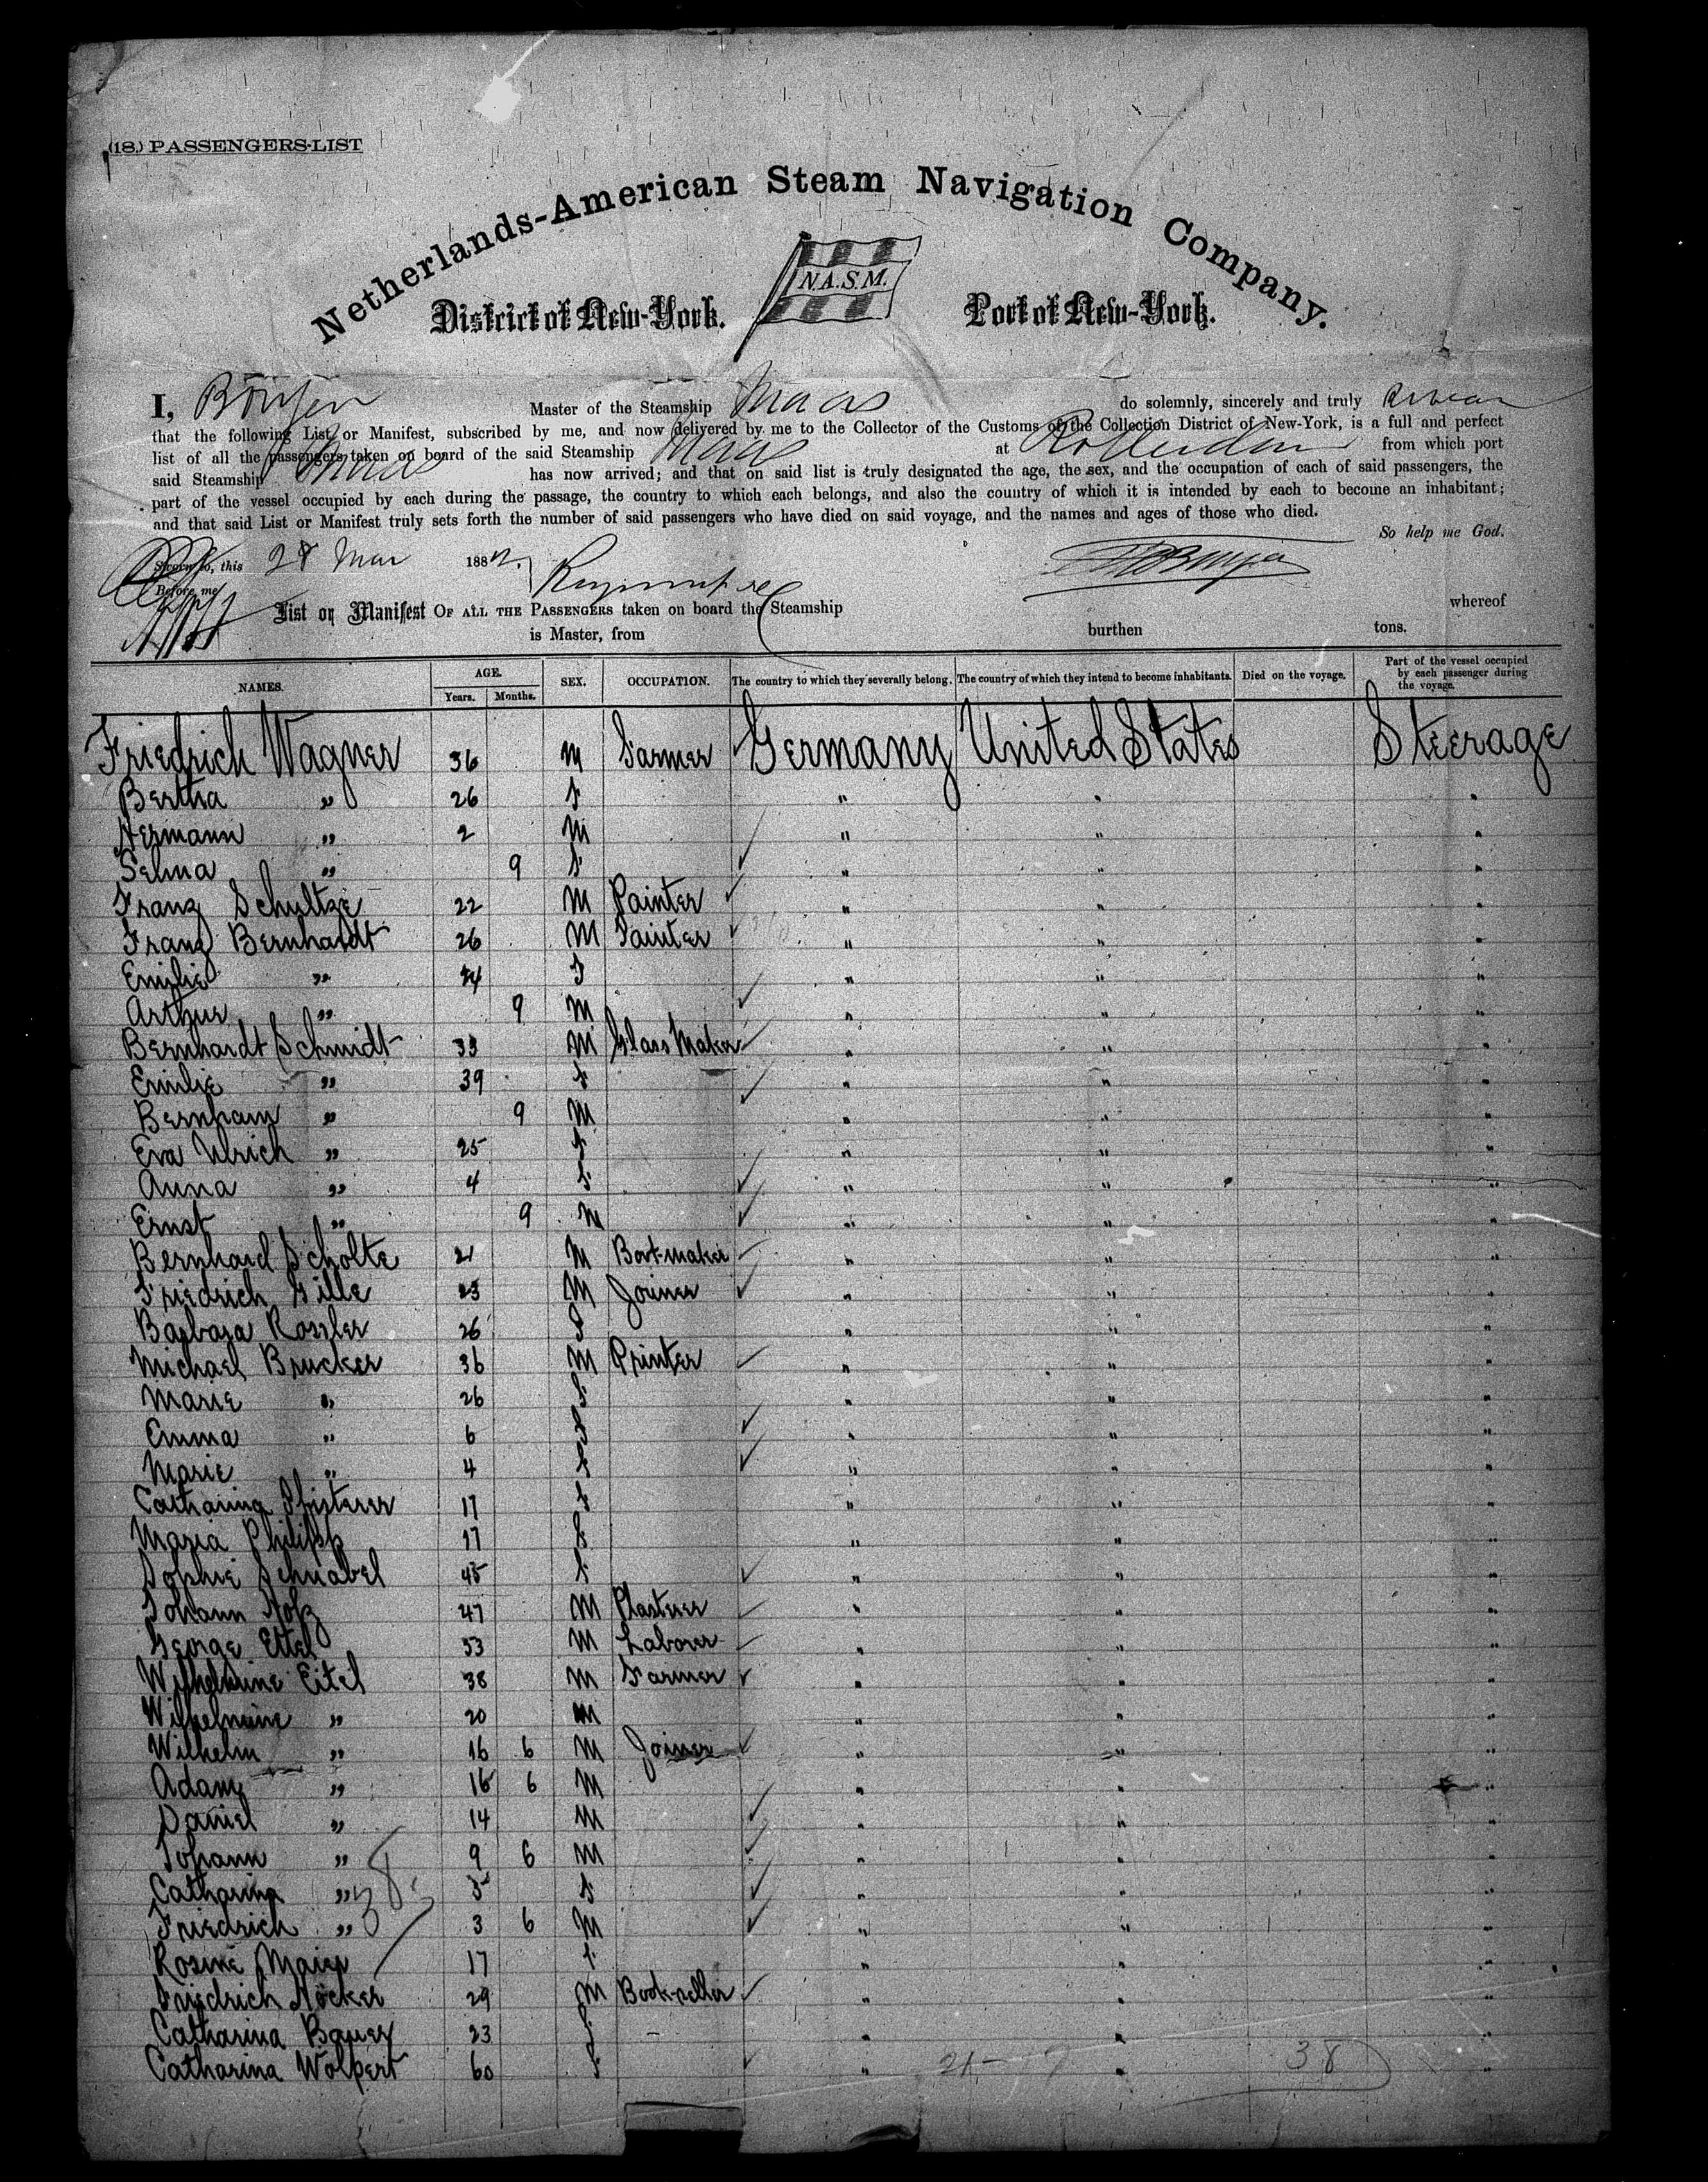 (18.) PASSENGERS-LIST
Netherlands-American Steam Navigation Company.
N.A.S.M.
District of New-York. Port of New-York.
I, Master of the Steamship Maas do solemnly, sincerely and truly swear
that the following List or Manifest, subscribed by me, and now delivered by me to the Collector of the Customs of the Collection District of New-York, is a full and perfect
list of all the passengers taken on board of the said Steamship Maas at Rotterdam from which port
said Steamship Maas has now arrived; and that on said list is truly designated the age, the sex, and the occupation of each of said passengers, the
part of the vessel occupied by each during the passage, the country to which each belongs, and also the country of which it is intended by each to become an inhabitant;
and that said List or Manifest truly sets forth the number of said passengers who have died on said voyage, and the names and ages of those who died.
So help me God.
Sworn to, this 28 Mar 1882
Before me
List or Manifest OF ALL THE PASSENGERS taken on board the Steamship whereof
is Master, from burthen tons.
NAMES. AGE. Years. Months. SEX. OCCUPATION. The country to which they severally belong. The country of which they intend to become inhabitants. Died on the voyage. Part of the vessel occupied by each passenger during the voyage.
Friedrich Wagner 36 M Farmer Germany United States Steerage
Bertha " 26 F " " "
Hermann " 2 M " " "
Selma " 9 F " " "
Franz Schultze 22 M Painter " " "
Franz Bernhardt 26 M Painter " " "
Emilie " 24 F " " "
Arthur " 9 M " " "
Bernhardt Schmidt 33 M Glass Maker " " "
Emilie " 39 F " " "
Bernham " 9 M " " "
Eva Ulrich " 25 F " " "
Anna " 4 F " " "
Ernst " 9 M " " "
Bernhard Scholte 21 M Boot-maker " " "
Friedrich Gille 23 M Joiner " " "
Barbara Rossler 26 F " " "
Michael Brucker 36 M Printer " " "
Marie " 26 F " " "
Emma " 6 F " " "
Marie " 4 F " " "
Catharina Pfisterer 17 F " " "
Maria Philipp 17 F " " "
Sophie Schnabel 45 F " " "
Johann 47 M Plasterer " " "
George Ettel 53 M Laborer " " "
Wilhelmine Eitel 38 M Farmer " " "
Wilhelmine " 20 M " " "
Wilhelm " 16 6 M Joiner " " "
Adam " 16 6 M " " "
Daniel " 14 M " " "
Johann " 9 6 M " " "
Catharina " 5 F " " "
Friedrich " 3 6 M " " "
38
Rosine Maier 17 F " " "
Friedrich Nöcker 29 M Book-seller " " "
Catharina Bauer 23 F " " "
Catharina Wolpert 60 F " " "
21 - 7 38